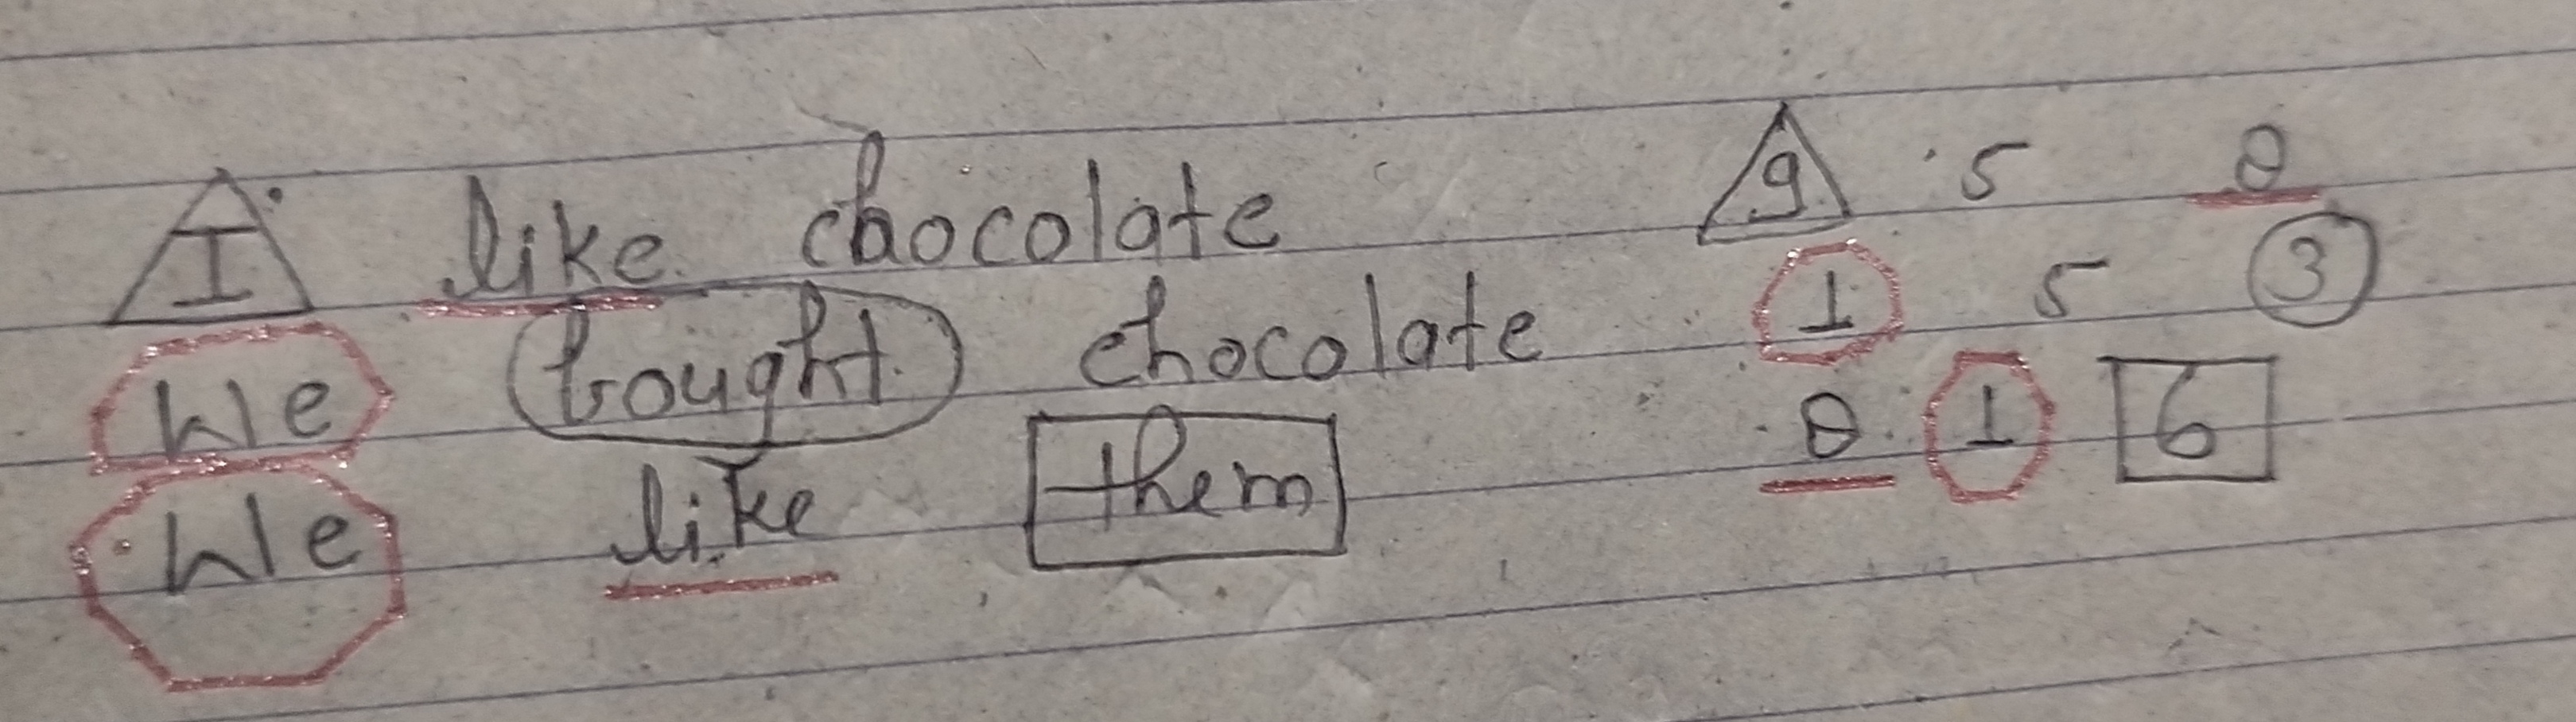 I like chocolate 9 5 0
We bought chocolate 1 5 3
We like them 0 1 6